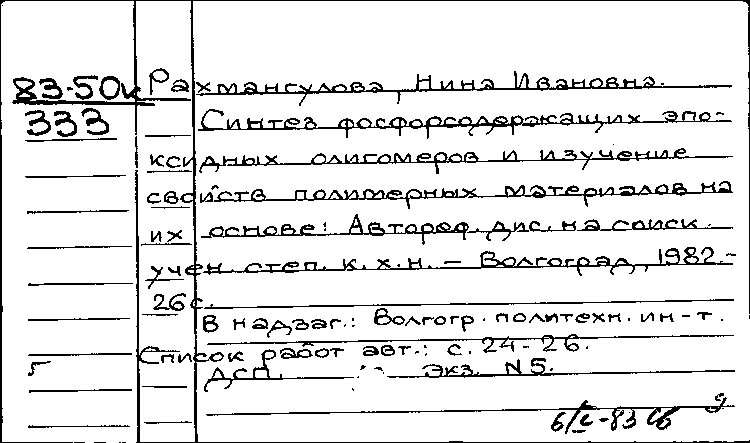 83-50к Рахмангулова, Нина Ивановна.
333 Синтез фосфорсодержащих эпо-
ксидных олигомеров и изучение
свойств полимерных материалов на
их основе: Автореф. дис. на соиск.
учен. степ. к. х. н. – Волгоград, 1982.-
26с.
В надзаг.: Волгогр. политехн. ин-т.
Список работ авт.: с. 24-26.
ДСП. Экз. N5.